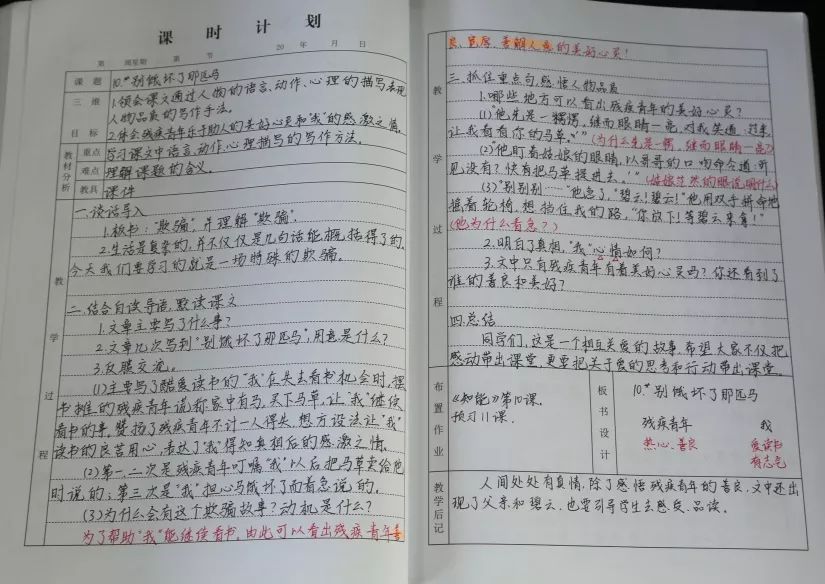 课时计划
第 周星期 第 节 20 年 月 日
课题 10.*别饿坏了那匹马
三维目标 1.领会课文通过人物的语言、动作、心理的描写表现
人物品质的写作手法。
2.体会残疾青年乐于助人的美好心灵和"我"的感激之情。
教材分析 重点 学习课文中语言、动作、心理描写的写作方法。
难点 理解课题的含义。
教具 课件
教学过程
一.谈话导入
1.板书:"欺骗",并理解"欺骗"。
2.生活是复杂的,并不仅仅是几句话能概括得了的,
今天我们要学习的就是一场特殊的欺骗。
二.结合自读导语,默读课文
1.文章主要写了什么事?
2.文章几次写到"别饿坏了那匹马",用意是什么?
3.反馈交流。
(1)主要写了酷爱读书的"我"在失去看书机会时,摆
书摊的残疾青年谎称家中有马,买下马草,让"我"继续
看书的事,赞扬了残疾青年不计一人得失,想方设法让"我"
读书的良苦用心,表达了"我"得知真相后的感激之情。
(2)第一、二次是残疾青年叮嘱"我"以后把马草卖给他
时说的;第三次是"我"担心马饿坏了而着急说的。
(3)为什么会有这个欺骗故事?动机是什么?
为了帮助"我"能继续看书,由此可以看出残疾青年善
良、宽厚、善解人意的美好心灵!
教学过程
三.抓住重点句,感悟人物品质
1.哪些地方可以看出残疾青年的美好心灵?
(1)"他先是一愣,继而眼睛一亮,对我笑道:'过来,
让我看看你的马草。'"(为什么先是一愣,继而眼睛一亮?)
(2)"他盯着姑娘的眼睛,以哥哥的口吻命令道:听
见没有?快看把马草提进去。'"(姑娘茫然的眼说明什么)
(3)"别别别……"他急了,"碧云!碧云!"他用双手拼命地
摇着轮椅,想挡住我的路,"你放下!等碧云来拿!"
(他为什么着急?)
2.明白了真相,"我"心情如何?
3.文中只有残疾青年有着美好心灵吗?你还看到了
谁的善良和美好?
四.总结
同学们,这是一个相互关爱的故事,希望大家不仅把
感动带出课堂,更要把关于爱的思考和行动带出课堂。
布置作业
《知能》第10课.
预习11课.
板书设计
10.*别饿坏了那匹马
残疾青年 我
热心、善良 爱读书
有志气
教学后记
人间处处有真情,除了感悟残疾青年的善良,文中还出
现了父亲和碧云,也要引导学生去感受、品读。